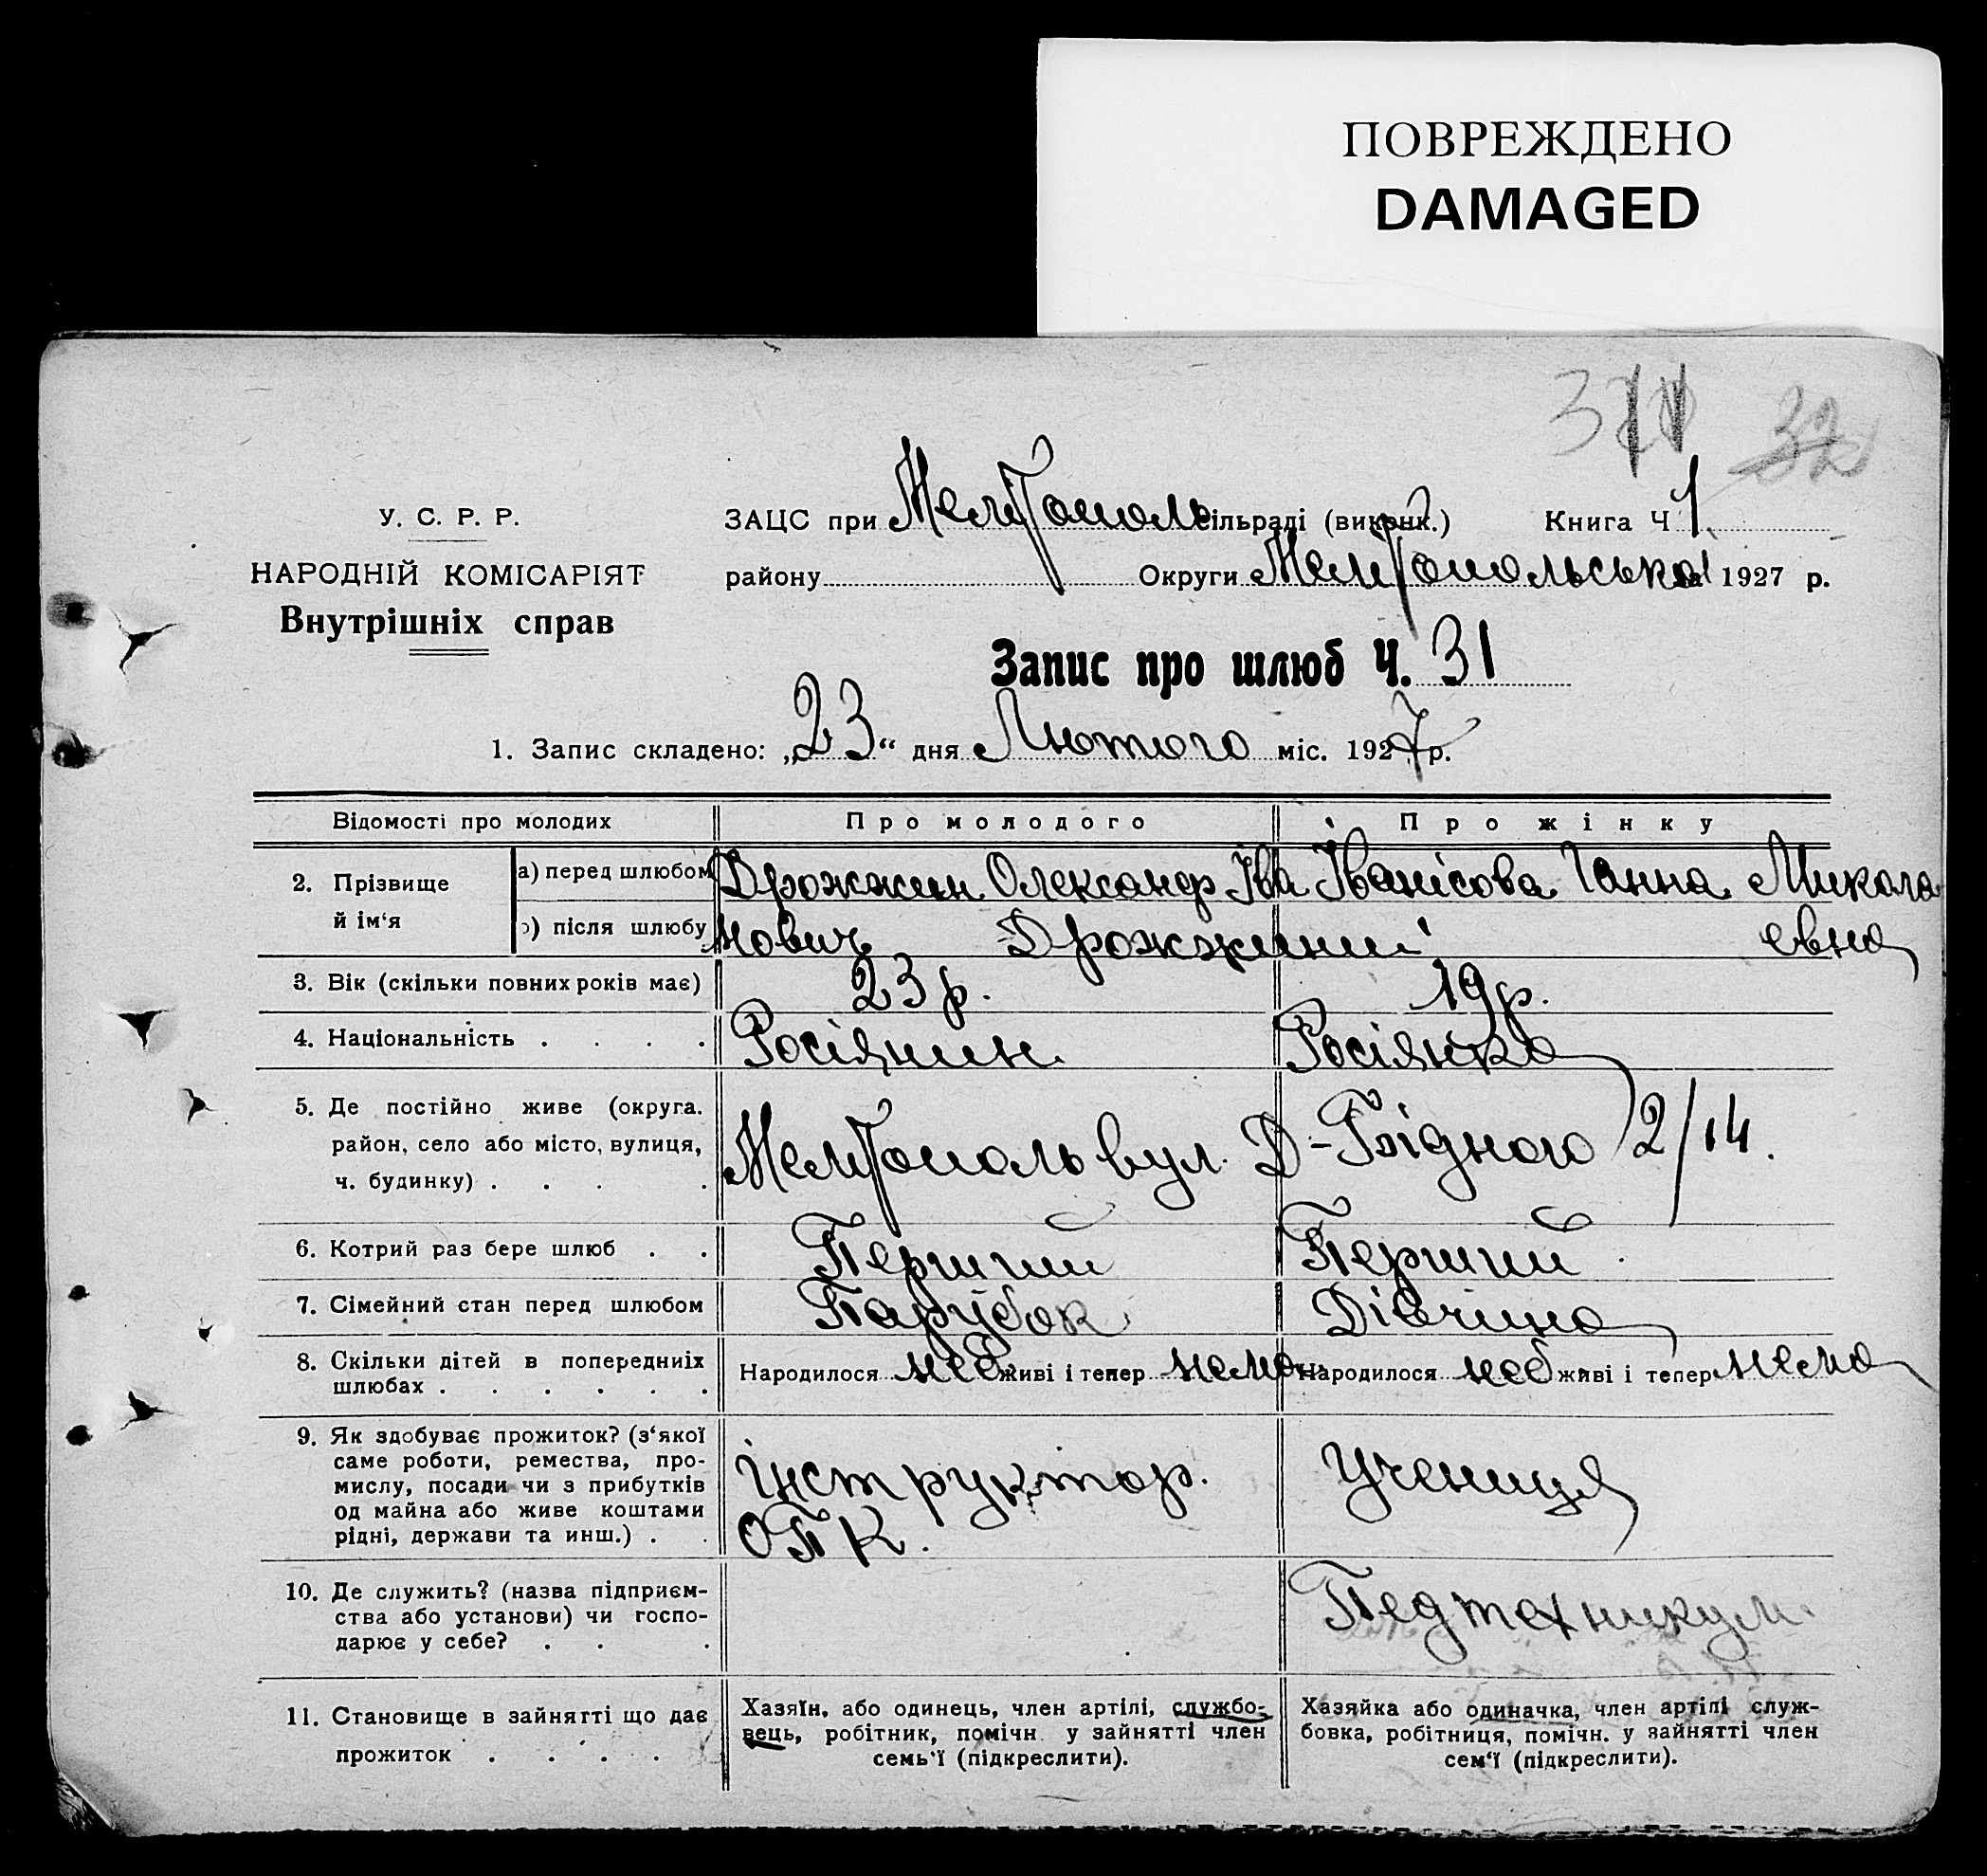 ПОВРЕЖДЕНО
DAMAGED
У. С. Р. Р.
НАРОДНІЙ КОМІСАРІЯТ
Внутрішніх справ
ЗАЦС при Мелітополь сільраді (виконк.) Книга Ч 1
району Округи Мелітопольська 1927 р.
Запис про шлюб Ч. 31
1. Запис складено: „23“ дня Лютого міс. 1927 р.
Відомості про молодих Про молодого Про жінку
2. Прізвище й ім‘я
а) перед шлюбом Дрожжин Олександр Іва Іванісова Ганна Микола
) після шлюбу нович Дрожжини евна
3. Вік (скільки повних років має) 23 р. 19 р.
4. Національність . . . . Росіянин Росіянка
5. Де постійно живе (округа.
район, село або місто, вулиця,
ч. будинку) . . . . Мелітополь вул. Д-Бідного 2/14.
6. Котрий раз бере шлюб . . Перший Перший
7. Сімейний стан перед шлюбом Парубок Дівчина
8. Скільки дітей в попередниіх
шлюбах . . . . . . Народилося живі і тепер нема Народилося живі і тепер нема
9. Як здобуває прожиток? (з‘якої
саме роботи, ремества, про-
мислу, посади чи з прибутків
од майна або живе коштами
рідні, держави та инш.) . .
інструктор.
ОПК.
Учениця
10. Де служить? (назва підприєм-
ства або установи) чи госпо-
дарює у себе? . . .
Педтехникум.
11. Становище в зайнятті що дає
прожиток . . . .
Хазяїн, або одинець, член артілі, службо-
вець, робітник, помічн у зайнятті член
семь‘ї (підкреслити).
Хазяйка або одиначка, член артілі служ-
бовка, робітниця, помічн. у зайнятті член
сем‘ї (підкреслити).